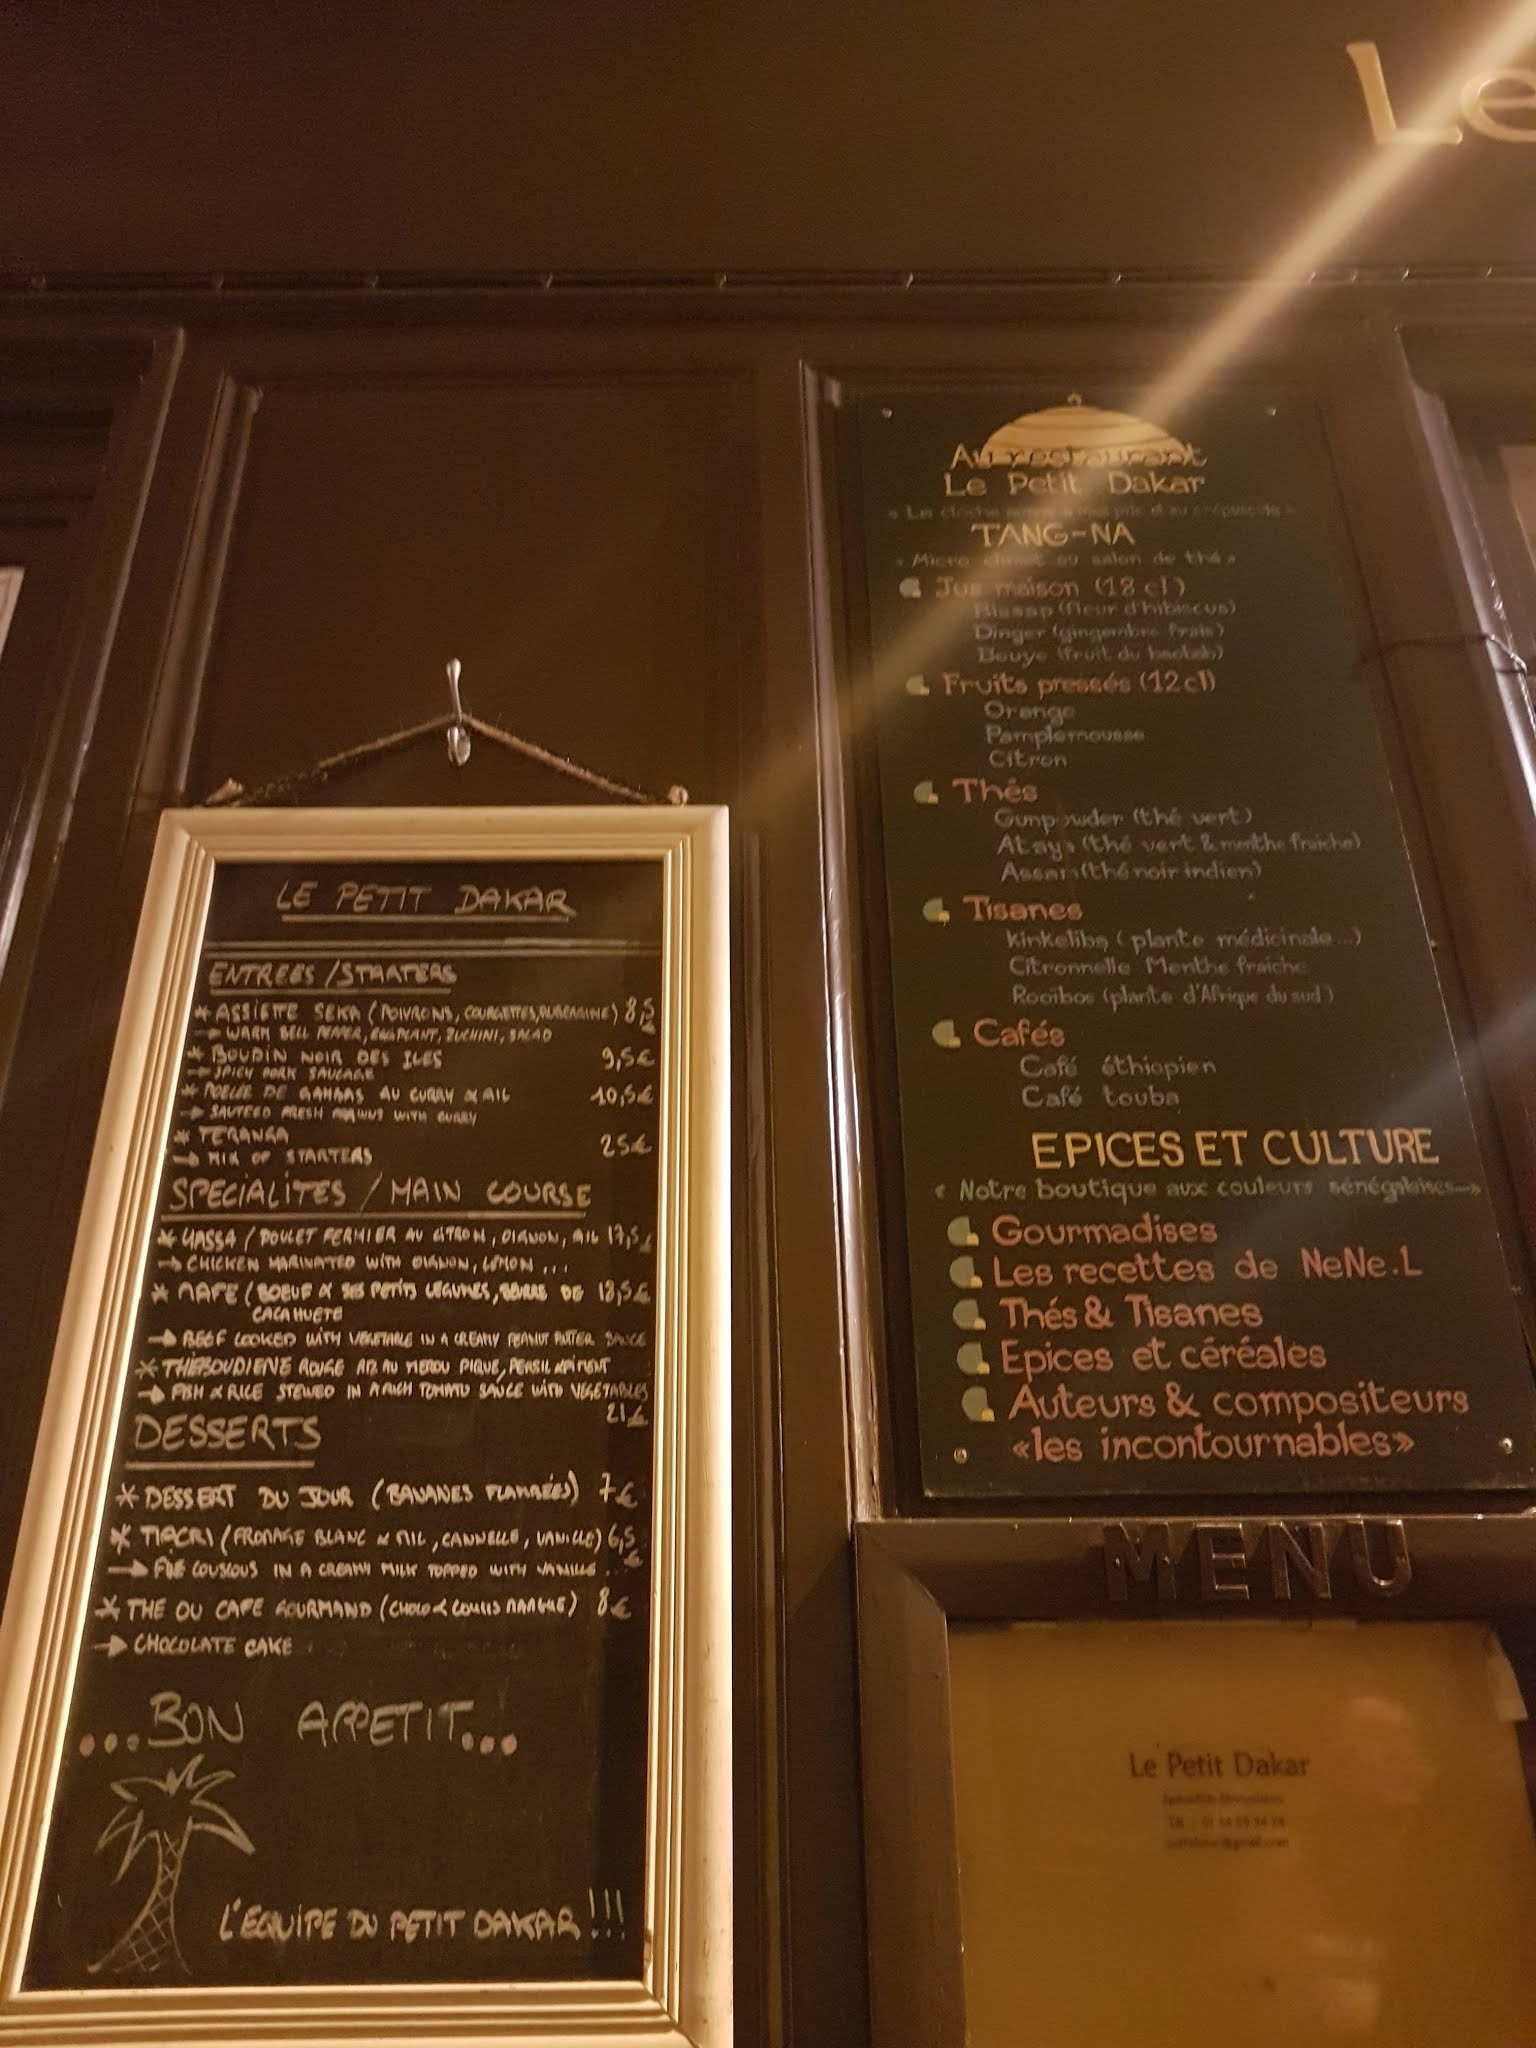 Le
LE PETIT DAKAR
ENTREES/STARTERS
* ASSIETTE SEKA (POIVRONS, COURGETTES, AUBERGINE) 8,5
€
→ WARM BELL PEPPER, EGGPLANT, ZUCHINI, SALAD
* BOUDIN NOIR DES ILES 9,5€
→ SPICY PORK SAUCAGE
* POELEE DE GAMBAS AU CURRY & AIL 10,5€
→ SAUTEED FRESH WITH CURRY
* TERANGA 25€
→ MIX OF STARTERS
SPECIALITES / MAIN COURSE
* YASSA / POULET FERMIER AU CITRON, OIGNON, AIL 17,5€
→ CHICKEN MARINATED WITH OIGNON, LEMON ...
* MAFE / (BOEUF & SES PETITS LEGUMES, BEURRE DE 18,5€
CACAHUETE
→ BEEF COOKED WITH VEGETABLE IN A CREAMY PEANUT BUTTER SAUCE
* THIEBOUDIENE ROUGE RIZ AU MEROU PIQUÉ, PERSIL & PIMENT
→ FISH & RICE STEWED IN A RICH TOMATO SAUCE WITH VEGETABLES
21€
DESSERTS
* DESSERT DU JOUR (BANANES FLAMBÉES) 7€
* TIACRI (FROMAGE BLANC & MIL, CANNELLE, VANILLE) 6,5
€
→ FINE COUSCOUS IN A CREAMY MILK TOPPED WITH VANILLE ...
* THE OU CAFE GOURMAND (CHOCO & COULIS MANGUE) 8€
→ CHOCOLATE CAKE
...BON APPETIT...
L'EQUIPE DU PETIT DAKAR!!!
Au restaurant
Le Petit Dakar
TANG-NA
« Micro climat au salon de thé »
Jus maison (18 cl)
Bissap (fleur d'hibiscus)
Dinger (gingembre frais)
Bouye (fruit du baobab)
Fruits pressés (12 cl)
Orange
Pamplemousse
Citron
Thés
Gunpowder (thé vert)
Ataya (thé vert & menthe fraiche)
Assam (thé noir indien)
Tisanes
Kinkeliba (plante médicinale...)
Citronnelle Menthe fraiche
Rooïbos (plante d'Afrique du sud)
Cafés
Café éthiopien
Café touba
EPICES ET CULTURE
« Notre boutique aux couleurs sénégalaises »
Gourmadises
Les recettes de NeNe.L
Thés & Tisanes
Epices et céréales
Auteurs & compositeurs
«les incontournables»
MENU
Le Petit Dakar